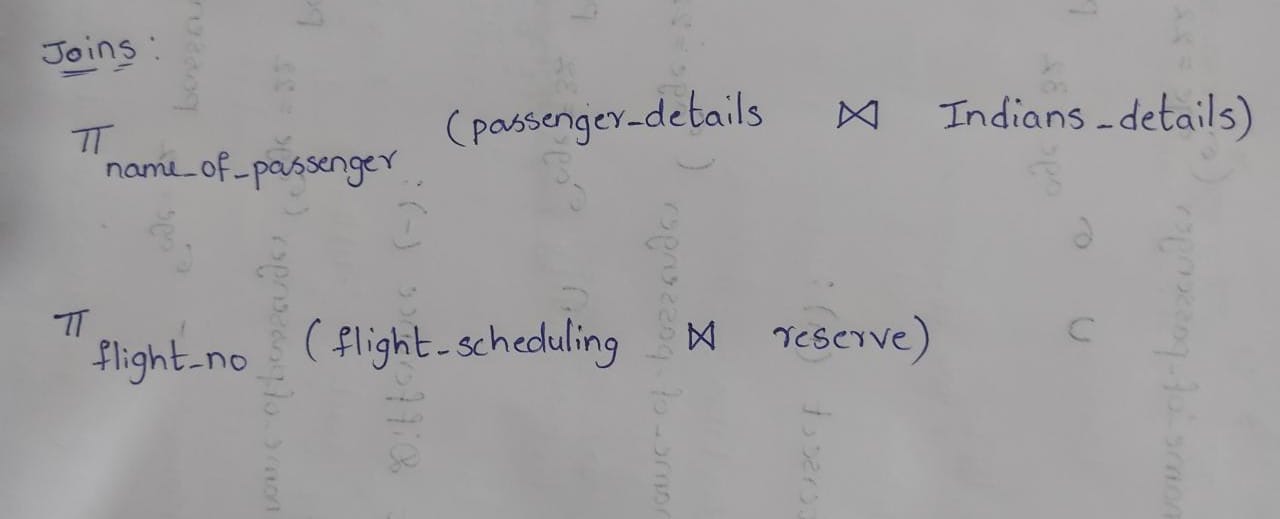 Joins :
π name_of_passenger (passenger_details ⋈ Indians_details)
π flight_no (flight_scheduling ⋈ reserve)